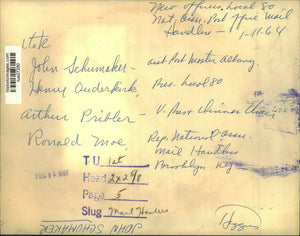 New Officers, Local 80
Nat. Assn. Post Office Mail
Handlers - 1-11-64
John Schumaker - asst Post Master Albany
Henry Ouderkirk, Pres. Local 80
Arthur Pribler - V. Pres
Ronald Moe, Rep. National Assn.
Mail Handlers
Brooklyn NY
TU 1st
Head 2x2
Page 5
Slug Mail Handlers
JOHN SCHUMAKER